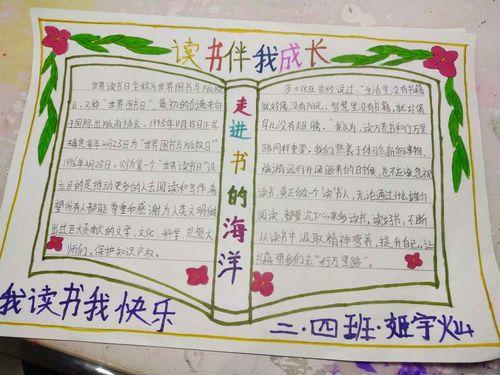 读书伴我成长
世界读书日全称为世界图书与版权
日，又称“世界图书日”，最初的创意来自
于国际出版商协会。1995年11月15日正式
确定每年4月23日为“世界图书与版权日”
1996年4月23日，则为第一个“世界读书日”设
立目的是推动更多的人去阅读和写作，希
望所有人都能尊重和感谢为人类文明做
出过巨大贡献的文学，文化，科学，思想大
师们，保护知识产权。
走进书的海洋
莎士比亚曾经说过“生活里没有书籍
就好像没有阳光，智慧里没有书籍，就好像
鸟儿没有翅膀。”我认为，读万卷书和行万里
路同样重要，我们
读书，真正做个“读书人”，无论通过什么媒介
阅读，都要沉下心来多读书，读好书，不断
从读书中汲取精神营养，提升自己，让
书籍带我们去“行万里路”。
我读书我快乐
二·四班·姬宇灿